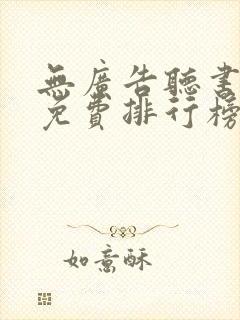 無廣告聽書
免費排行榜
如意酥